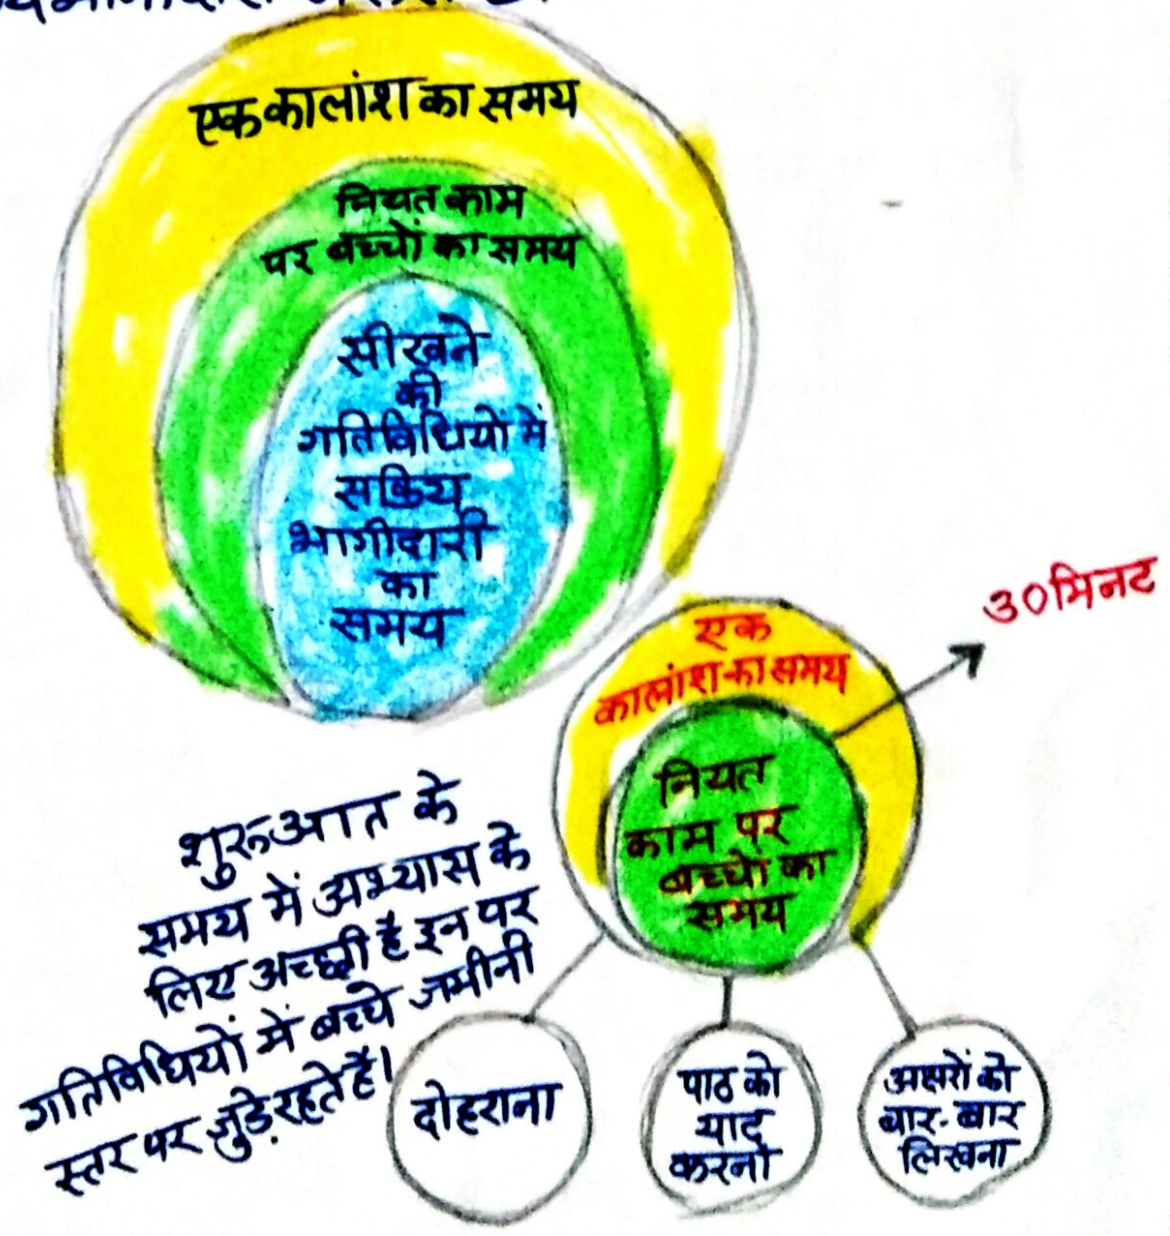 एक कालांश का समय
नियत काम
पर बच्चों का समय
सीखने
की
गतिविधियों में
सक्रिय
भागीदारी
का
समय
30 मिनट
एक
कालांश का समय
नियत
काम पर
बच्चों का
समय
शुरुआत के
समय में अभ्यास के
लिए अच्छी है इन पर
गतिविधियों में बच्चे जमीनी
स्तर पर जुड़े रहते हैं।
दोहराना
पाठ को
याद
करना
अक्षरों को
बार-बार
लिखना